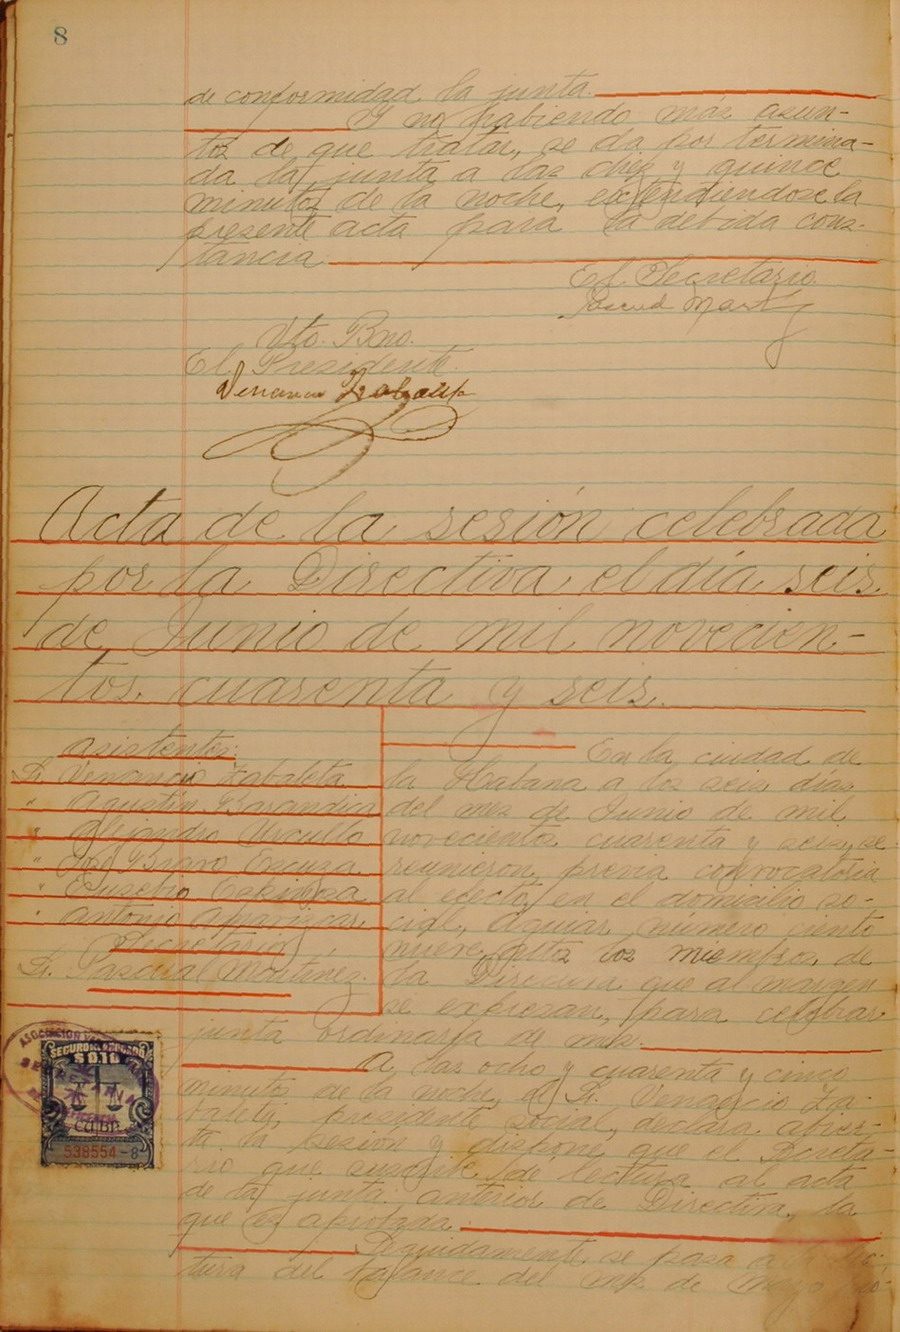 8
de conformidad la junta.
Y no habiendo más asun-
tos de que tratar, se da por termina-
da la junta a las diez y quince
minutos de la noche, extendiéndose la
presente acta para la debida cons-
tancia.
El Secretario.
Pascual Martínez
Vto. Bno.
El Presidente.
Venancio Zabaleta
Acta de la sesión celebrada
por la Directiva el día seis
de Junio de mil novecien-
tos cuarenta y seis.
Asistentes:
Sr. Venancio Zabaleta
" Agustín Barandica
" Alejandro Urcullo
" José Bravo Escuza
" Eusebio Espinza
" Antonio Aparizcar
Secretario
Sr. Pascual Martínez.
En la ciudad de
la Habana a los seis días
del mes de Junio de mil
novecientos cuarenta y seis, se
reunieron, previa convocatoria
al efecto, en el domicilio so-
cial, Aguiar, número ciento
nueve, altos los miembros de
la Directiva que al margen
se expresan, para celebrar
junta ordinaria de mes.
A las ocho y cuarenta y cinco
minutos de la noche, el Sr. Venancio Za-
baleta, presidente social, declara abier-
ta la sesión y dispone que el Secreta-
rio que suscribe, de lectura al acta
de la junta anterior de Directiva, la
que es aprobada.
Seguidamente se pasa a la lec-
tura del balance del mes de Mayo
ASOCIACION
SECRETARIA
BENEFICENCIA
SEGURO DEL ABOGADO
$0.10
CUBA
538554-8